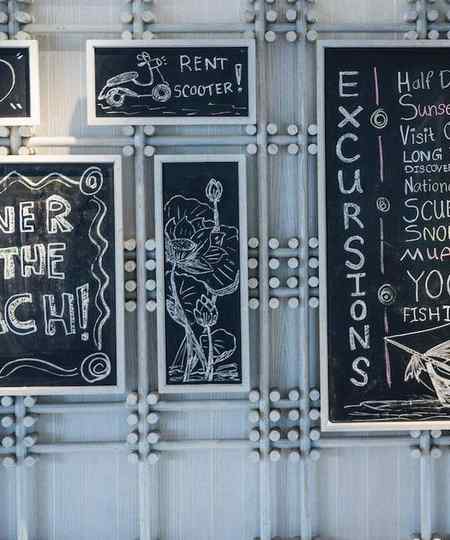 RENT
SCOOTER!
NER
THE
ACH!
EXCURSIONS
Half D
Sunse
Visit C
LONG
DISCOVER
Nation
SCUB
SNO
MUA
YOG
FISHI